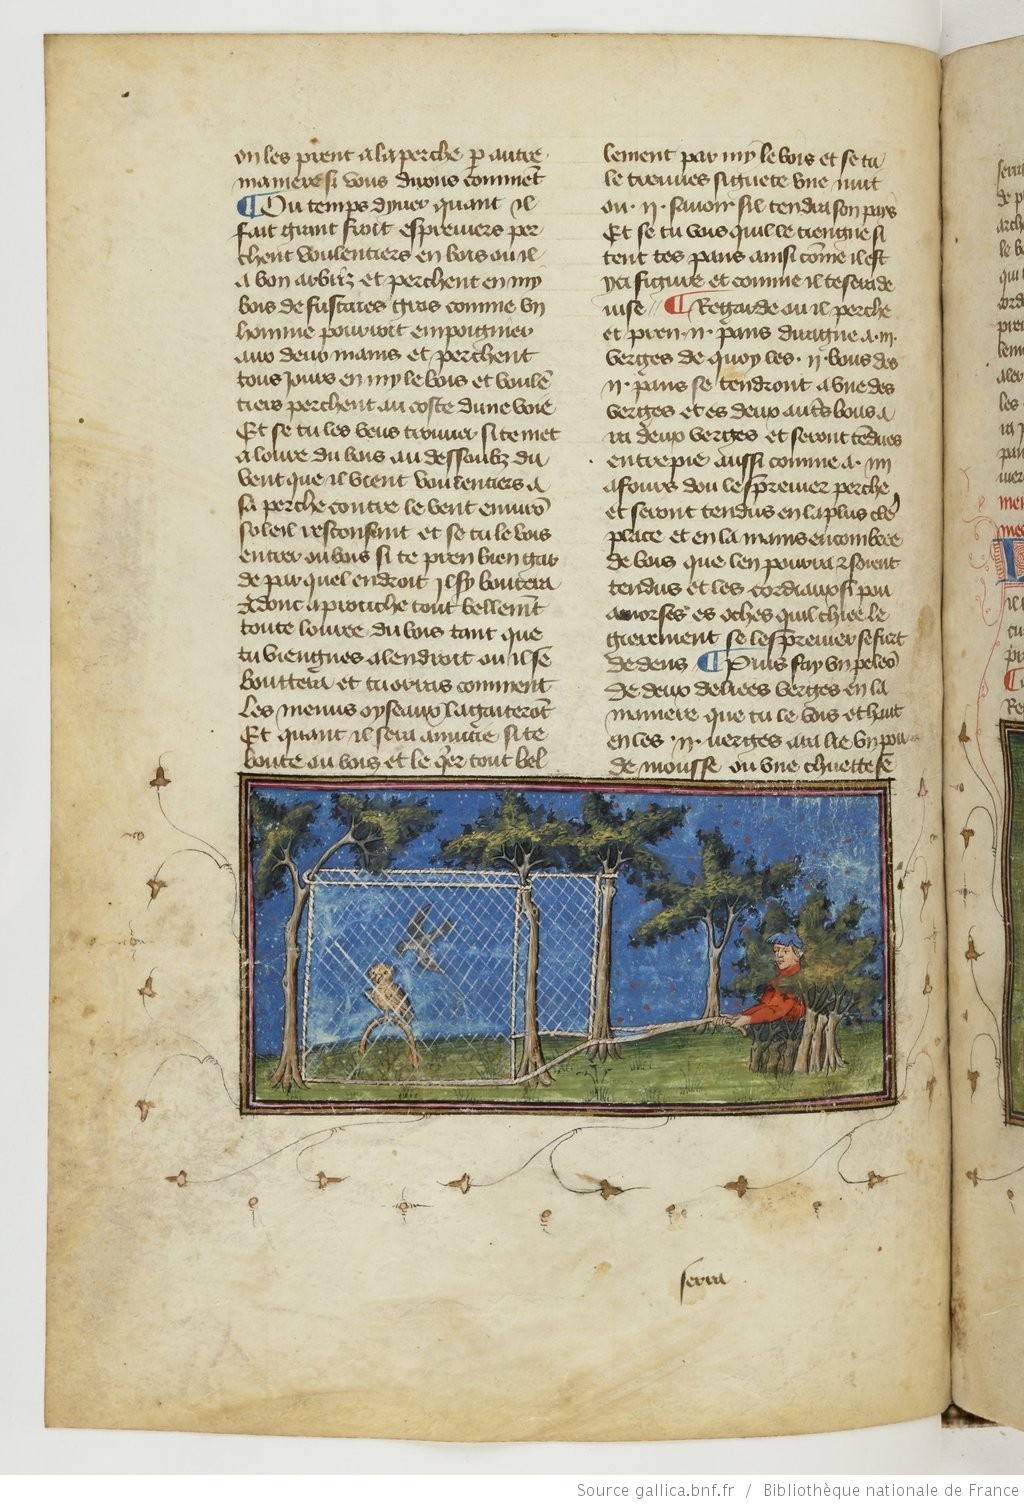 on les prent a la perche p autre
maniere si vous dirons commēt
Ou temps dyuer quant il
fait grant froit espreuiers per
chent voulentiers en bois ou il
a bon arbriz et perchent en my
bois de fustaies gros comme vn
homme pourroit empoignier
aux deux mains et perchent
tous Jours en my le bois et voulē
tiers perchent au coste dune voie
Et se tu les veus trouuer si te met
a loure du bois au dessoubz du
vent que il vient voulentiers a
sa perche contre le vent enuirō
soleil resconsant et se tu le vois
entrer ou bois si te pren bien gar
de par quel endroit Il sy boutera
donc aprouche tout bellemēt
toute louree du bois tant que
tu viengnes a lendroit ou il se
bouttera et tu orras comment
Les menus oyseaux lagaiterōt
Et quant il sera anuitie si te
boute ou bois et le qier tout bel
lement par my le bois et se tu
le treuues si guete vne nuit
ou .ij. sauoir sil tendra son pays
Et se tu vois quil le tiengne si
tent tes pans ainsi cōme il est
yci figure et comme il te sera de
uise Regarde ou il perche
et pren .ij. pans diraigne a .iij.
verges de quoy les .ij. bous des
ij. pans se tendront a vne des
verges et es deux autēs bous a
ra deux verges et seront tēdues
entrepie aussi comme a .iiij
a fours dou lespreuier perche
et seront tendus en la plus cleē
place et en la mains encombree
de bois que len pourra soient
tendus et les cordiaux si pou
amorses es oches quil chiee le
gierement se lespreuier se fiert
dedens Puis fay vn
de deux deliees verges en la
maniere que tu le vois et hault
en les .ij. verges ara lie vn pou
de mousse ou vne chuette se
serra
Source gallica.bnf.fr / Bibliothèque nationale de France